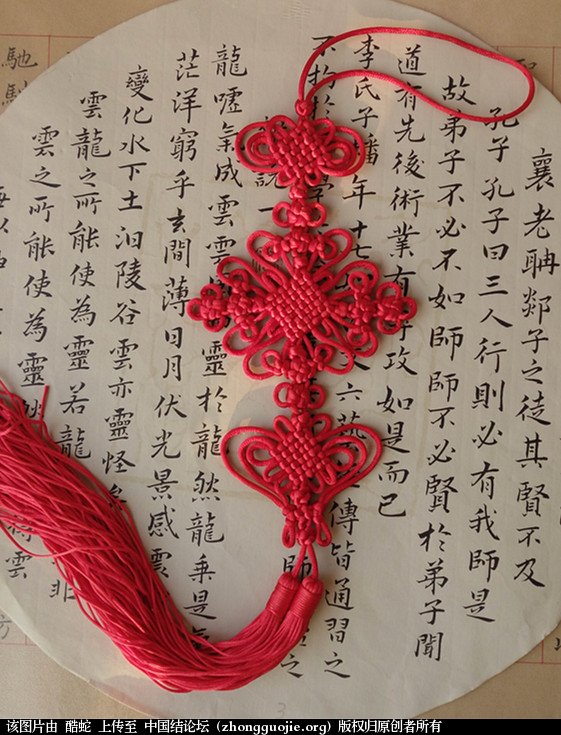 襄老聃郯子之徒其賢不及
孔子孔子曰三人行則必有我師是
故弟子不必不如師師不必賢於弟子聞
道有先後術業有攻如是而已
李氏子蟠年十七文六傳皆通習之
不拘於學師之
說
龍噓氣成雲雲靈於龍然龍乘是
茫洋窮乎玄間薄日月伏光景感雲
變化水下土汩陵谷雲亦靈怪
雲龍之所能使為靈若龍非
雲之所能使為靈雲
馳
该图片由 酷蛇 上传至 中国结论坛 (zhongguojie.org) 版权归原创者所有